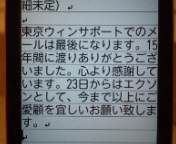 細未定）
東京ウィンサポートでのメ
ールは最後になります。15
年間に渡りありがとうござ
いました。心より感謝して
います。23日からはエクソ
ンとして、今まで以上にご
愛顧を宜しいお願い致しま
す。